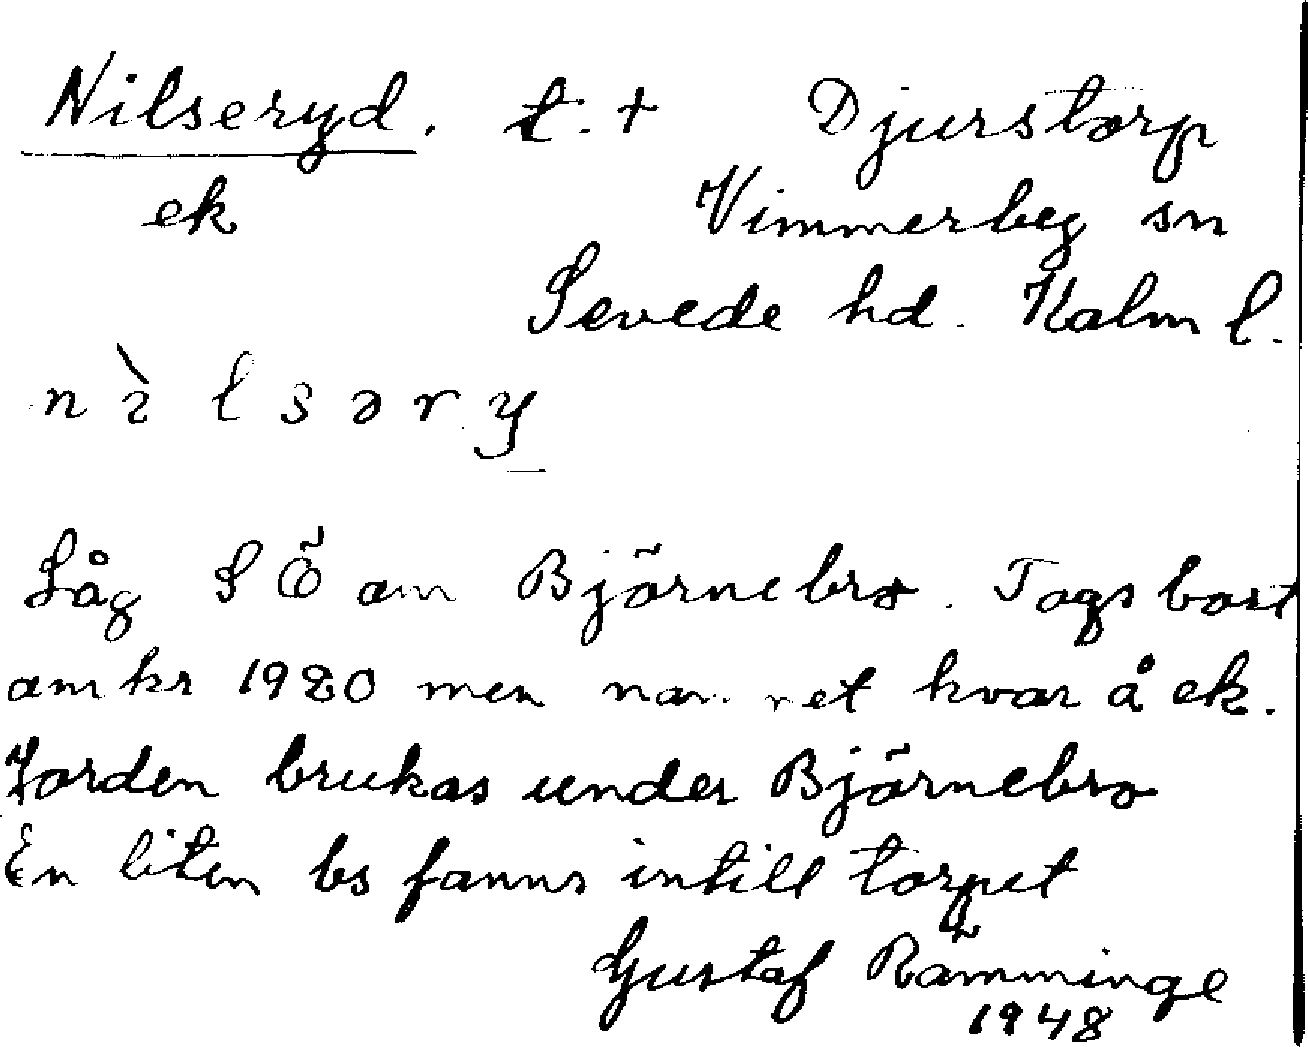 Nilseryd. t. + Djurstorp
ek Vimmerby sn
Sevede hd. Kalm l.
nìlsəry
Låg SÖ om Björnebro. Togs bort
omkr 1920 men namnet kvar å ek.
Jorden brukas under Björnebro
En liten bs fanns intill torpet
Gustaf Rämminge
1948